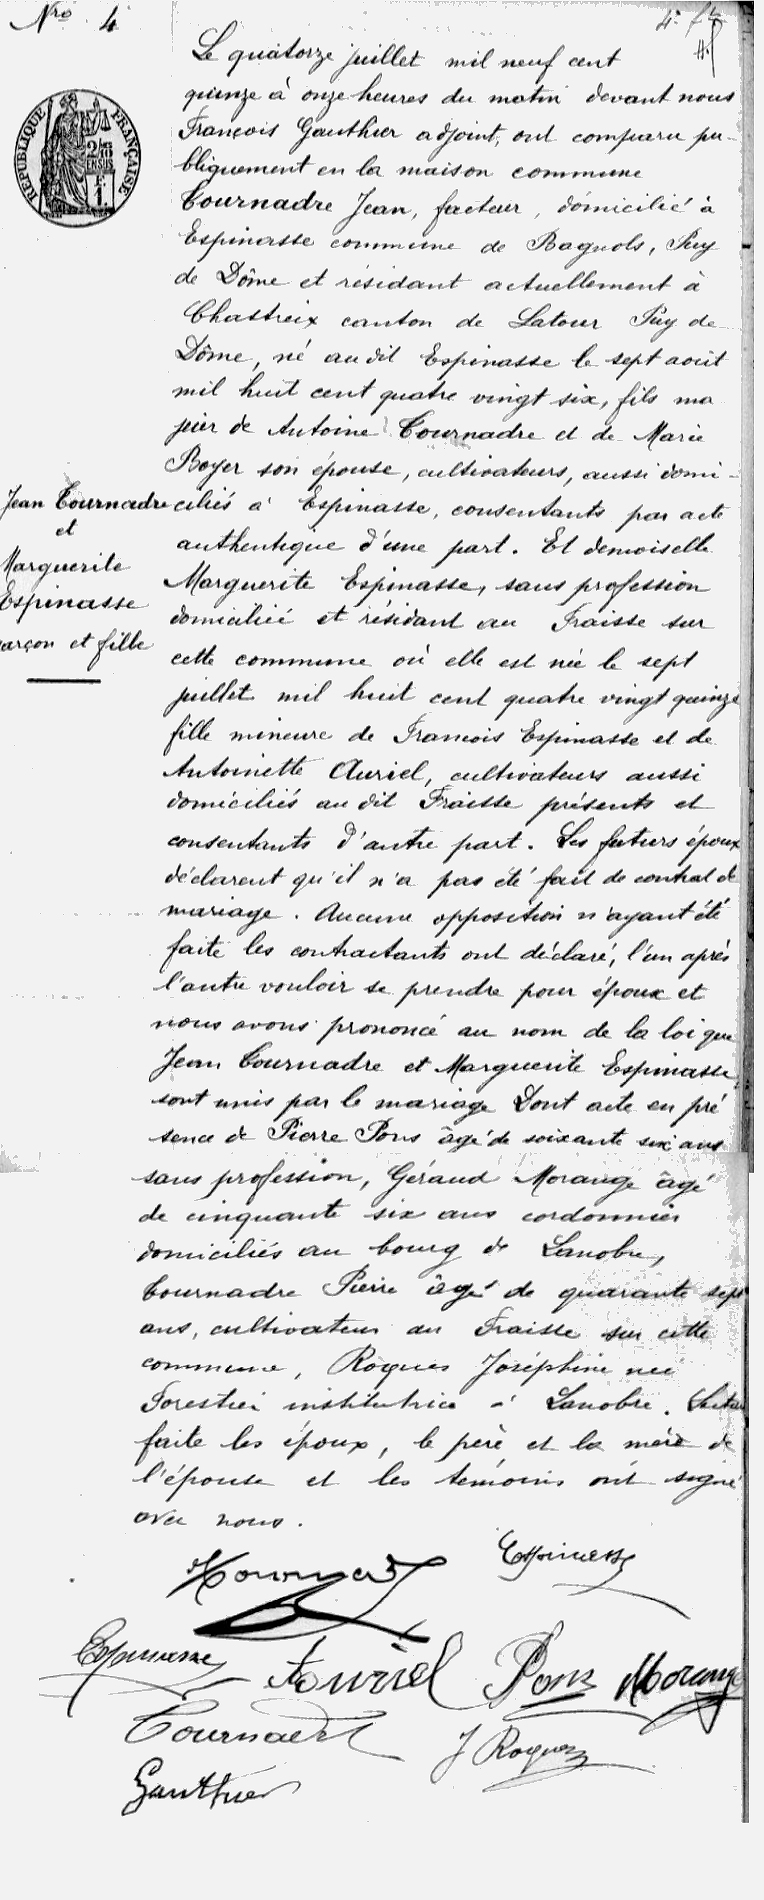 Nro 4
4e ft
Le quatorze juillet mil neuf cent
quinze à onze heures du matin devant nous
François Gauthier adjoint, ont comparu pu-
bliquement en la maison commune
Tournadre Jean, facteur, domicilié à
Espinasse commune de Bagnols, Puy
de Dôme et résidant actuellement à
Chastreix canton de Latour Puy de
Dôme, né audit Espinasse le sept août
mil huit cent quatre vingt six, fils ma
jeur de Antoine Tournadre et de Marie
Boyer son épouse, cultivateurs, aussi domi-
ciliés à Espinasse, consentants par acte
authentique d'une part. Et demoiselle
Marguerite Espinasse, sans profession
domiciliée et résidant au Fraisse sur
cette commune où elle est née le sept
juillet mil huit cent quatre vingt quinze
fille mineure de Francois Espinasse et de
Antoinette Auriel, cultivateurs aussi
domiciliés au dit Fraisse présents et
consentants d'autre part. Les futurs époux
déclarent qu'il n'a pas été fait de contrat de
mariage. Aucune opposition n'ayant été
faite les contractants ont déclaré, l'un après
l'autre vouloir se prendre pour époux et
nous avons prononcé au nom de la loi que
Jean Tournadre et Marguerite Espinasse,
sont unis par le mariage Dont acte en pré
sence de Pierre Pons âgé de soixante six ans
sans profession, Géraud Morange âgé
de cinquante six ans cordonnier
domiciliés au bourg de Lanobre,
Tournadre Pierre âgé de quarante sept
ans, cultivateur au Fraisse sur cette
commune, Roques Joséphine née
Forestier institutrice à Lanobre. Lecture
faite les époux, le père et la mère de
l'épouse et les témoins ont signé
avec nous.
Jean Tournadre
et
Marguerite
Espinasse
garçon et fille
RÉPUBLIQUE FRANÇAISE
Tournadre
Espinasse
Espinasse
Auriel
Pons
Morange
Tournadre
J Roques
Gauthier